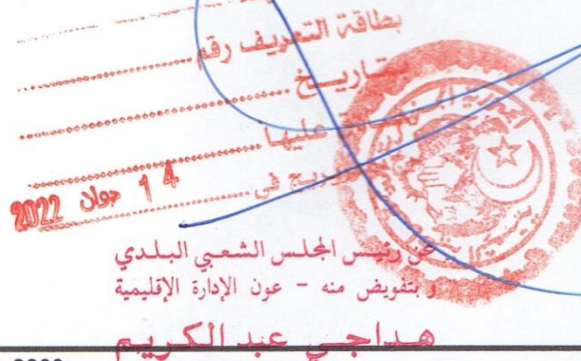 بطاقة التعريف رقم
بتاريـــخ
عليها
بريج في
14 جوان 2022
عن رئيس المجلس الشعبي البلدي
و بتفويض منه - عون الإدارة الإقليمية
هداجي عبد الكريم